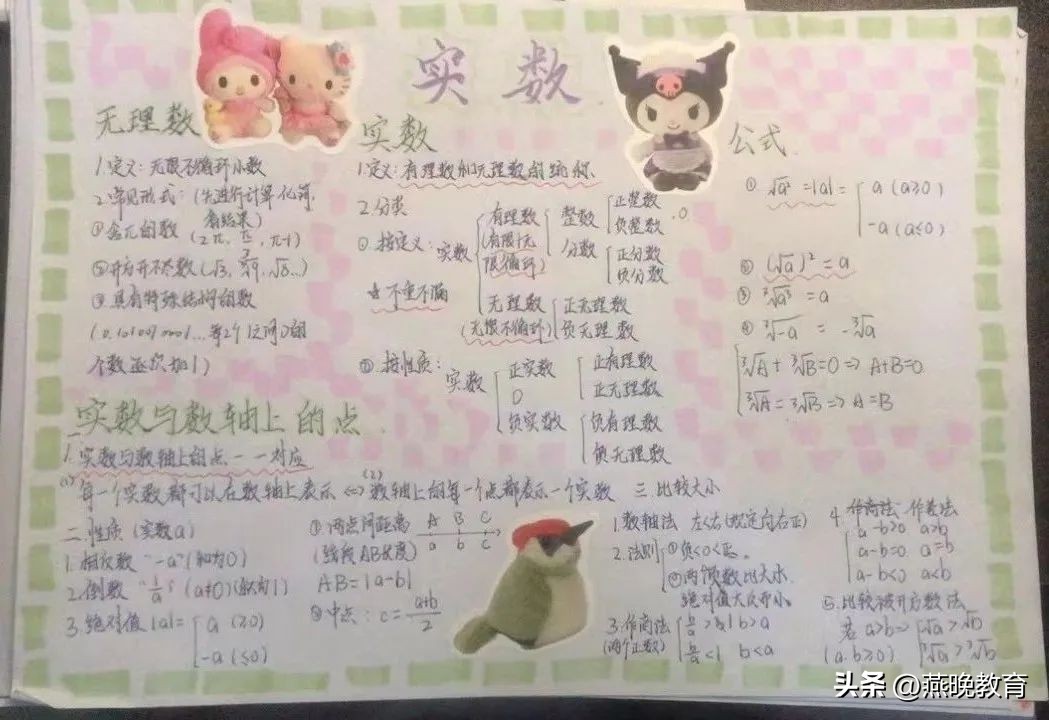 实数
无理数
1.定义：无限不循环小数
2.常见形式：(先进行计算化简，
看结果)
①含π的数 (2π, , π-1)
②开方开不尽数(√3,
③具有特殊结构的数
每2个1之间0的
个数逐次加1)
实数
1.定义：有理数和无理数的统称.
2.分类
①按定义：实数
有理数
(有限+无
限循环)
整数
正整数
0
负整数
分数
正分数
负分数
★不重不漏
无理数
(无限不循环)
正无理数
负无理数
②按性质：实数
正实数
正有理数
正无理数
0
负实数
负有理数
负无理数
公式
① √a² =|a|=
a (a≥0)
-a (a≤0)
② (√a)² = a
③ ³√a³ = a
④ ³√-a = -³√a
³√A + ³√B=0 => A+B=0
³√A = ³√B => A=B
实数与数轴上的点
一.实数与数轴上的点一一对应
(1)每一个实数都可以在数轴上表示 <=> (2)数轴上的每一个点都表示一个实数
二.性质 (实数a)
1.相反数 "-a" (和为0)
2.倒数 "1/a" (a≠0)(积为1)
3.绝对值 |a|=
a (≥0)
-a (≤0)
①两点间距离
(线段AB长度)
A B C
a b c
AB=|a-b|
②中点：c= a+b/2
三.比较大小
1.数轴法 左<右(规定向右正)
2.法则
①负<0<正.
②两负数比大小.
绝对值大反而小.
3.作商法
(两个正数)
b>a
b<a
4.作差法
a-b>0 a>b
a-b=0 a=b
a-b<0 a<b
5.比较被开方数法
若 a>b =>
√a>√b
³√a>³√b
(a.b≥0)
头条 @燕晚教育